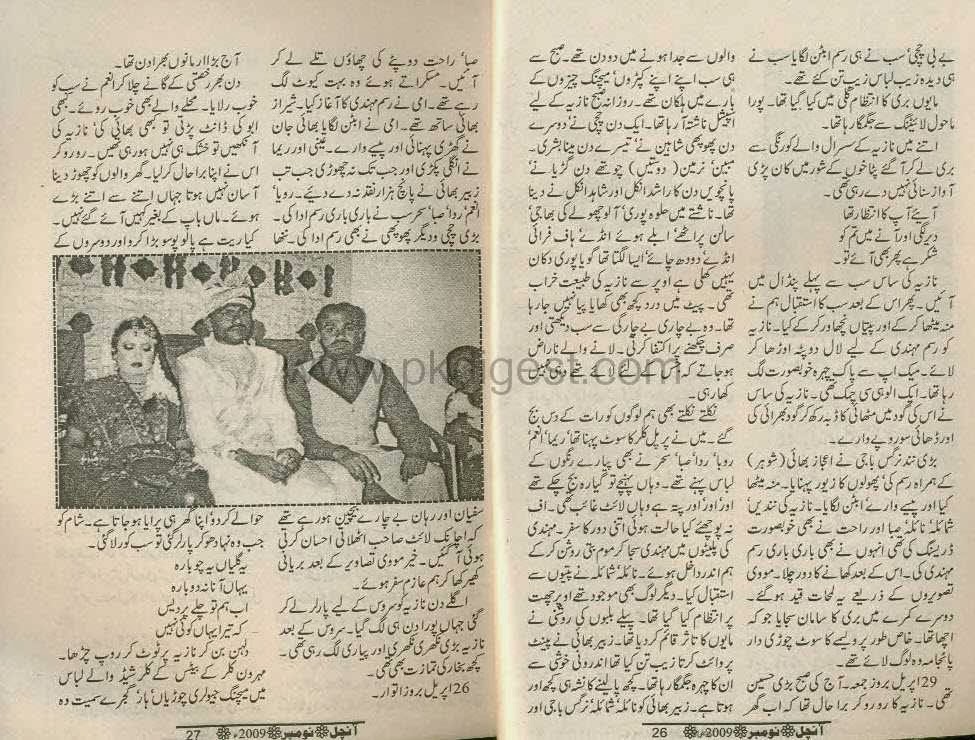 بے بی چچی‘ سب نے ہی رسم ابٹن لگایا سب نے
ہی دیدہ زیب لباس زیب تن کئے تھے۔
مایوں بری کا انتظام گلی میں کیا گیا تھا۔ پورا
ماحول لائیٹنگ سے جگمگا رہا تھا۔
اتنے میں نازیہ کے سسرال والے کورنگی سے
بری لے کر آ گئے پٹاخوں کے شور میں کان پڑی
آواز سنائی نہیں دے رہی تھی۔
آیئے آپ کا انتظار تھا
دیر لگی اور آنے میں تم کو
شکر ہے پھر بھی آئے تو۔
نازیہ کی ساس سب سے پہلے پنڈال میں
آئیں۔ پھر اس کے بعد سب کا استقبال ہم نے
منہ میٹھا کر کے اور پتیاں نچھاور کر کے کیا۔ نازیہ
کو رسم مہندی کے لیے لال دوپٹہ اوڑھا کر
لائے۔ میک اپ سے پاک چہرہ خوبصورت لگ
رہا تھا۔ ایک الوہی سی چمک تھی۔ نازیہ کی ساس
نے اس کی گود میں مٹھائی کا ڈبہ رکھ کر گود بھرائی کی
اور ڈھائی سو روپے وارے۔
بڑی نند نرگس باجی نے اعجاز بھائی (شوہر)
کے ہمراہ رسم کی‘ پھولوں کا زیور پہنایا۔ منہ میٹھا
کیا اور پیسے وارے ابٹن لگایا۔ نازیہ کی نندیں‘
شمائلہ‘ نائلہ‘ صبا اور راحت نے بھی خوبصورت
ڈریسنگ کی تھی انہوں نے بھی باری باری رسم
مہندی کی۔ اس کے بعد کھانے کا دور چلا۔ مووی
تصویروں کے ذریعے یہ لمحات قید ہو گئے۔
دوسرے کمرے میں بری کا سامان سجایا جو کہ
اچھا تھا۔ خاص طور پر ولیمے کا سوٹ چوڑی دار
پائجامہ وہ لوگ لائے تھے۔
29 اپریل بروز جمعہ۔ آج کی صبح بڑی حسین
تھی۔ نازیہ کا رو رو کر برا حال تھا کہ اب گھر
والوں سے جدا ہونے میں دو دن تھے۔ صبح سے
ہی سب اپنے اپنے کپڑوں‘ میچنگ چیزوں کے
بارے میں ہلکان تھے۔ روزانہ صبح نازیہ کے لیے
اسپیشل ناشتہ آ رہا تھا۔ ایک دن چچی نے‘ دوسرے
دن پھوپھی شاہین نے‘ تیسرے دن مینا بشری۔
مبین‘ نرمین (دوستیں) چوتھے دن گڑیا نے‘
پانچویں دن کا راشد انکل اور شاہد انکل نے دینا
تھا۔ ناشتے میں حلوہ پوری‘ آلو چھولے کی بھاجی‘
سالن پراٹھے‘ ابلے ہوئے انڈے‘ ہاف فرائی
انڈے‘ دودھ چائے‘ ایسا لگتا تھا گویا پوری دکان
یہیں کھلی ہے اوپر سے نازیہ کی طبیعت خراب
تھی۔ پیٹ میں درد کچھ بھی کھایا پیا نہیں جا رہا
تھا۔ وہ بے چاری بے چارگی سے سب دیکھتی اور
صرف چکھنے پر اکتفا کرتی۔ لانے والے ناراض
ہو جاتے کہ جس کے لئے لائے تھے وہ نہیں
کھا رہی۔
نکلتے نکلتے بھی ہم لوگوں کو رات کے دس بج
گئے۔ میں نے پرپل کلر کا سوٹ پہنا تھا‘ ریما‘ انعم
روبا‘ ردا‘ صبا‘ سحر نے بھی پیارے رنگوں کے
لباس پہنے تھے۔ وہاں پہنچے تو گیارہ بج چکے تھے
اور اور اور پتہ ہے وہاں لائٹ غائب تھی۔ اف
نہ پوچھئے کیا حالت ہوئی اتنی دور کا سفر۔ مہندی
کی پلیٹوں میں مہندی سجا کر موم بتی روشن کر کے
ہم اندر داخل ہوئے۔ نائلہ‘ شمائلہ نے پتیوں سے
استقبال کیا۔ دیگر لوگ بھی موجود تھے اوپر چھت
پر انتظام کیا گیا تھا۔ پیلے بلبوں کی روشنی نے
مایوں کا تاثر قائم کر دیا تھا۔ زبیر بھائی نے پینٹ
پر وائٹ کرتا زیب تن کیا تھا اندرونی خوشی سے
ان کا چہرہ جگمگا رہا تھا۔ کچھ پا لینے کا نشہ ہی کچھ اور
ہوتا ہے۔ زبیر بھائی کو نائلہ‘ شمائلہ‘ نرگس باجی اور
آنچل نومبر 2009ء 26
صبا‘ راحت دوپٹے کی چھاؤں تلے لے کر
آئیں۔ مسکراتے ہوئے وہ بہت کیوٹ لگ
رہے تھے۔ امی نے رسم مہندی کا آغاز کیا۔ شیراز
بھائی ساتھ تھے۔ امی نے ابٹن لگایا بھائی جان
نے گھڑی پہنائی اور پیسے وارے۔ عینی اور ریما
نے انگلی پکڑی اور جب تک نہ چھوڑی جب تک
زبیر بھائی نے پانچ ہزار نقد نہ دے دیئے۔ روبا‘
انعم‘ ردا‘ صبا‘ سحر سب نے باری باری رسم ادا کی۔
بڑی چچی و دیگر پھوپھی نے بھی رسم ادا کی۔ ننھا
سفیان اور رہان بے چارے بے چین ہو رہے تھے
کہ اچانک لائٹ صاحب اٹھلاتی احسان کرتی
ہوئی آ گئیں۔ خیر مووی تصاویر کے بعد بریانی
کھیر کھا کر ہم عازم سفر ہوئے۔
اگلے دن نازیہ کو سروس کے لیے پارلر لے کر
گئی جہاں پورا دن ہی لگ گیا۔ سروس کے بعد
نازیہ بڑی نکھری نکھری اور پیاری لگ رہی تھی۔
کچھ بخار کی تمازت بھی تھی۔
26 اپریل بروز اتوار۔
آج بڑا ارمانوں بھرا دن تھا۔
دن بھر رخصتی کے گانے چلا کر انعم نے سب کو
خوب رلایا۔ محلے والے بھی خوب روئے۔ کبھی
ابو کی ڈانٹ پڑتی تو کبھی بھائی کی‘ نازیہ کی
آنکھیں تو خشک ہی نہیں ہو رہی تھیں۔ رو رو کر
اس نے اپنا برا حال کر لیا۔ گھر والوں کو چھوڑ دینا
آسان نہیں ہوتا جہاں اتنے سے اتنے بڑے
ہوئے۔ ماں باپ کے بغیر کہیں آئے گئے نہیں۔
کیا ریت ہے پالو پوسو بڑا کرو اور دوسروں کے
حوالے کر دو‘ اپنا گھر ہی پرایا ہو جاتا ہے۔ شام کو
جب وہ نہا دھو کر پارلر گئی تو سب کو رلا گئی۔
یہ گلیاں یہ چوبارہ
یہاں آنا نہ دوبارہ
اب ہم تو چلے پردیس
کہ تیرا یہاں کوئی نہیں
دلہن بن کر نازیہ پر ٹوٹ کر روپ چڑھا۔
مہرون کلر کے بیٹس کے گلر شیڈ والے لباس
میں میچنگ جیولری چوڑیاں‘ ہار‘ گجرے سمیت وہ
آنچل نومبر 2009ء 27
www.pkdigest.com